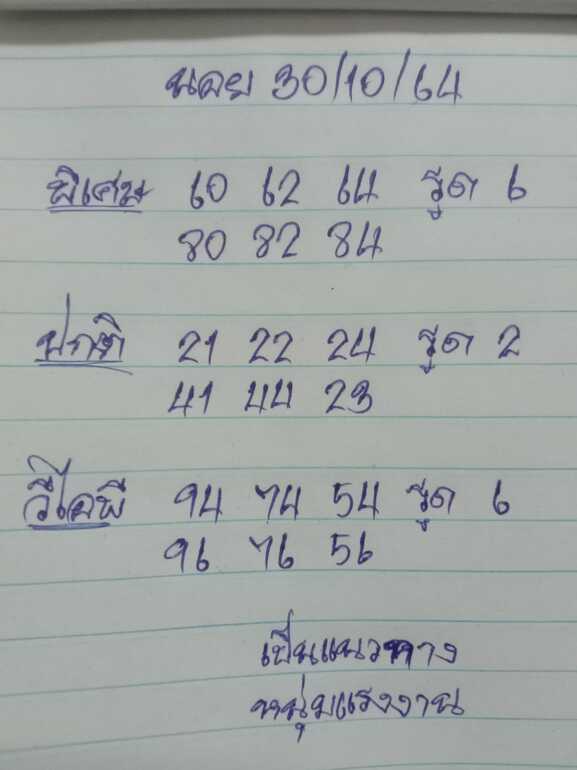 นอย 30/10/64
พิเศษ 60 62 64 รูด 6
80 82 84
ปกติ 21 22 24 รูด 2
41 44 23
วีไอพี 94 74 54 รูด 6
96 76 56
เป็นแนวทาง
หนุ่มแรงงาน